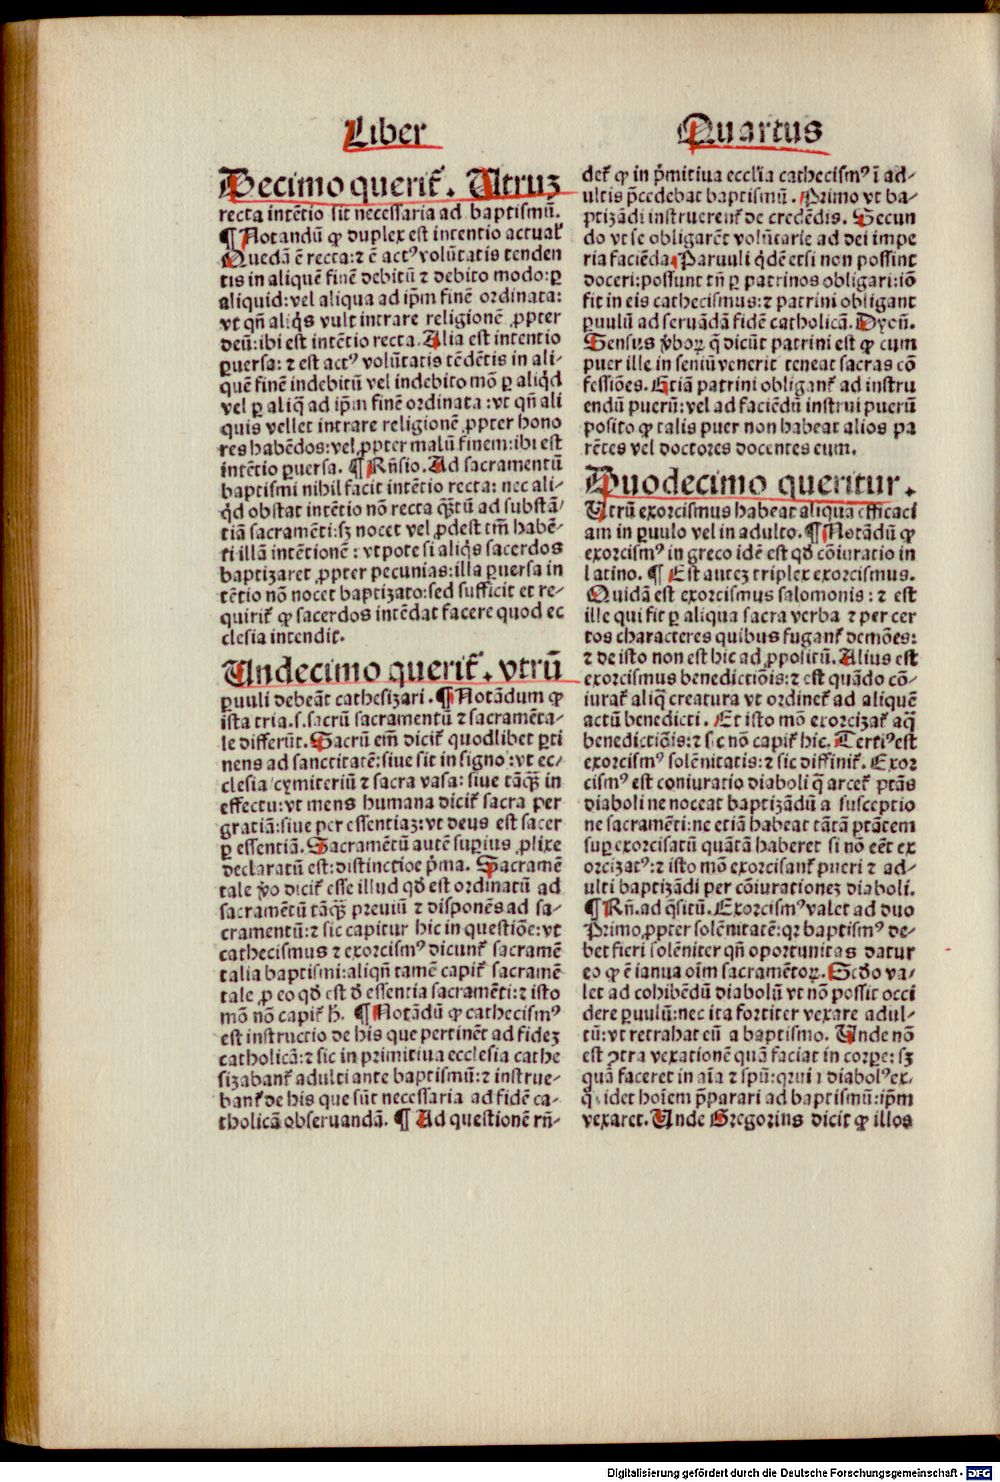 Liber Quartus
Decimo querit̃. Utruz
recta intẽtio sit necessaria ad baptismũ.
¶ Notandũ ꝙ duplex est intentio actual̃
Quedã ẽ recta: ⁊ ẽ actꝰ volũtatis tenden
tis in aliquẽ finẽ debitũ ⁊ debito modo: ꝑ
aliquid: vel aliqua ad ip̃m finẽ ordinata:
vt qñ aliq̃s vult intrare religionẽ ꝓpter
deũ: ibi est intẽtio recta. Alia est intentio
ꝑuersa: ⁊ est actꝰ volũtatis tẽdẽtis in ali-
quẽ finẽ indebitũ vel indebito mõ ꝑ aliq̃d
vel ꝑ aliq̃ ad ip̃m finẽ ordinata: vt qñ ali
quis vellet intrare religionẽ ꝓpter hono
res habẽdos: vel ꝓpter malũ finem: ibi est
intẽtio ꝑuersa. ¶ Rñsio. Ad sacramentũ
baptismi nihil facit intẽtio recta: nec ali-
q̃d obstat intẽtio nõ recta q̃ȝtũ ad substã-
tiã sacramẽti: sȝ nocet vel ꝓdest tm̃ habẽ-
ti illã intẽtionẽ: vtpote si aliq̃s sacerdos
baptizaret ꝓpter pecunias: illa ꝑuersa in
tẽtio nõ nocet baptizato: sed sufficit et re-
quirit̃ ꝙ sacerdos intẽdat facere quod ec
clesia intendit.
Undecimo querit̃. vtrũ
ꝑuuli debeãt cathesizari. ¶ Notãdum ꝙ
ista tria. s. sacrũ sacramentũ ⁊ sacramẽta-
le differũt. Sacrũ em̃ dicit̃ quodlibet ꝑti
nens ad sanctitatẽ: siue sit in signo: vt ec-
clesia cymiteriũ ⁊ sacra vasa: siue tãq̃ȝ in
effectu: vt mens humana dicit̃ sacra per
gratiã: siue per essentiaz: vt deus est sacer
ꝑ essentiã. Sacramẽtũ autẽ suꝑius ꝓlixe
declaratũ est: distinctioe p̃ma. Sacramẽ
tale ṽo dicit̃ esse illud qð est ordinatũ ad
sacramẽtũ tãq̃ȝ preuiũ ⁊ disponẽs ad sa-
cramentũ: ⁊ sic capitur hic in questiõe: vt
cathecismus ⁊ exorcismꝰ dicunt̃ sacramẽ
talia baptismi: aliqñ tamẽ capit̃ sacramẽ
tale ꝓ eo qð est ð essentia sacramẽti: ⁊ isto
mõ nõ capit̃ h̃. ¶ Notãdũ ꝙ cathecismꝰ
est instructio de his que pertinẽt ad fidez
catholicã: ⁊ sic in primitiua ecclesia cathe
sizabant̃ adulti ante baptismũ: ⁊ instrue-
bant̃ de his que sũt necessaria ad fidẽ ca-
tholicã obseruandã. ¶ Ad questionẽ rñ-
det̃ ꝙ in p̃mitiua eccl̃ia cathecismꝰ ĩ ad-
ultis p̃cedebat baptismũ. Primo vt ba-
ptizãdi instruerent̃ de credẽdis. Secun
do vt se obligarẽt volũtarie ad dei impe
ria faciẽda. Paruuli q̃dẽ etsi non possint
doceri: possunt tñ ꝑ patrinos obligari: iõ
fit in eis cathecismus: ⁊ patrini obligant
ꝑuulũ ad seruãdã fidẽ catholicã. Dycñ.
Sensus ṽboꝝ q̃ dicũt patrini est ꝙ cum
puer ille in seniũ venerit teneat sacras cõ
fessiões. Etiã patrini obligant̃ ad instru
endũ puerũ: vel ad faciẽdũ instrui puerũ
posito ꝙ talis puer non habeat alios pa
rẽtes vel doctores docentes eum.
Duodecimo queritur.
Utrũ exorcismus habeat aliqua efficaci
am in ꝑuulo vel in adulto. ¶ Notãdũ ꝙ
exorcismꝰ in greco idẽ est qð cõiuratio in
latino. ¶ Est autez triplex exorcismus.
Quidã est exorcismus salomonis: ⁊ est
ille qui fit ꝑ aliqua sacra verba ⁊ per cer
tos characteres quibus fugant̃ demões:
⁊ de isto non est hic ad ꝓpositũ. Alius est
exorcismus benedictiõis: ⁊ est quãdo cõ-
iurat̃ aliq̃ creatura vt ordinet̃ ad aliquẽ
actũ benedicti. Et isto mõ exorcizat̃ aq̃
benedictiõis: ⁊ sic nõ capit̃ hic. Tertiꝰ est
exorcismꝰ solẽnitatis: ⁊ sic diffinit̃. Exor
cismꝰ est coniuratio diaboli q̃ arcet̃ ptãs
diaboli ne noceat baptizãdũ a susceptio
ne sacramẽti: ne etiã habeat tãtã ptãtem
suꝑ exorcisatũ quãtã haberet si nõ eẽt ex
orcizatꝰ: ⁊ isto mõ exorcisant̃ pueri ⁊ ad-
ulti baptizãdi per cõiurationez diaboli.
¶ Rñ. ad q̃sitũ. Exorcismꝰ valet ad duo
Primo ꝓpter solẽnitatẽ: qꝛ baptismꝰ de-
bet fieri solẽniter qñ oportunitas datur
eo ꝙ ẽ ianua oĩm sacramẽtoꝝ. Scðo va-
let ad cohibẽdũ diabolũ vt nõ possit occi
dere ꝑuulũ: nec ita fortiter vexare adul-
tũ: vt retrahat eũ a baptismo. Unde nõ
est ꝯtra vexationẽ quã faciat in corꝑe: sȝ
quã faceret in aĩa ⁊ spũ: diabolꝰ ex-
hoĩem p̃parari ad baptismũ: ip̃m
vexaret. Unde Gregorius dicit ꝙ illos
Digitalisierung gefördert durch die Deutsche Forschungsgemeinschaft - DFG